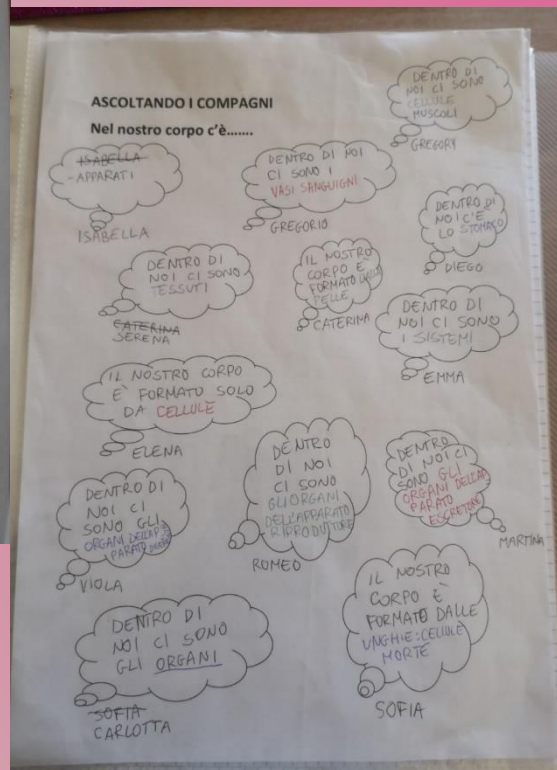 ASCOLTANDO I COMPAGNI
Nel nostro corpo c'è.......
DENTRO DI
NOI CI SONO
CELLULE
MUSCOLI
GREGORY
ISABELLA
-APPARATI
ISABELLA
DENTRO DI NOI
CI SONO I
VASI SANGUIGNI
GREGORIO
DENTRO DI
NOI C'È
LO STOMACO
DIEGO
DENTRO DI
NOI CI SONO
TESSUTI
CATERINA
SERENA
IL NOSTRO
CORPO È
FORMATO DALLA
PELLE
CATERINA
DENTRO DI
NOI CI SONO
I SISTEMI
EMMA
IL NOSTRO CORPO
È FORMATO SOLO
DA CELLULE
ELENA
DENTRO DI
NOI CI
SONO GLI
ORGANI DELL'AP=
PARATO
VIOLA
DENTRO
DI NOI
CI SONO
GLI ORGANI
DELL'APPARATO
RIPRODUTTORE
ROMEO
DENTRO
DI NOI CI
SONO GLI
ORGANI DELL'AP=
PARATO
ESCRETORE
MARTINA
DENTRO DI
NOI CI SONO
GLI ORGANI
SOFIA
CARLOTTA
IL NOSTRO
CORPO È
FORMATO DALLE
UNGHIE: CELLULE
MORTE
SOFIA